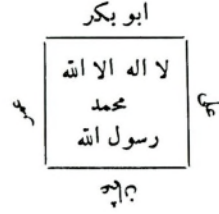 ابو بكر
لا اله الا الله
محمد
رسول الله
عمر
علي
عثمان